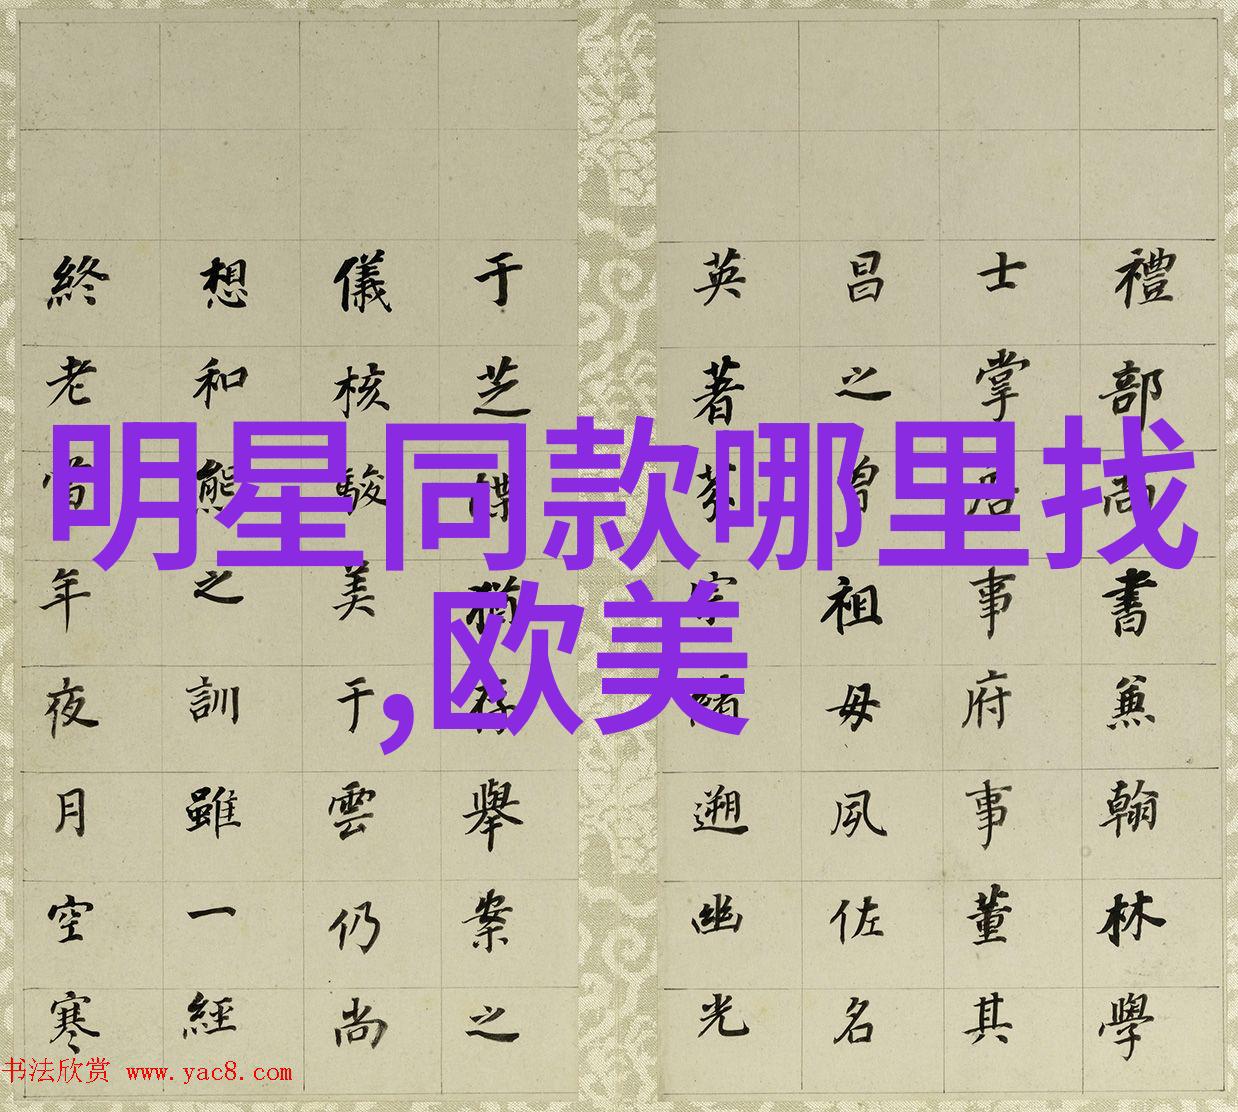 明星同款哪里找
,欧美
禮部尚書兼翰林學
士掌詹事府事董其
昌之曾祖母夙佐名
英著緒遡幽光
于芝牒猶存舉案之
儀核駿美于雲仍尚
想和熊之訓雖一經
終老當年夜月空寒
书法欣赏 www.yac8.com